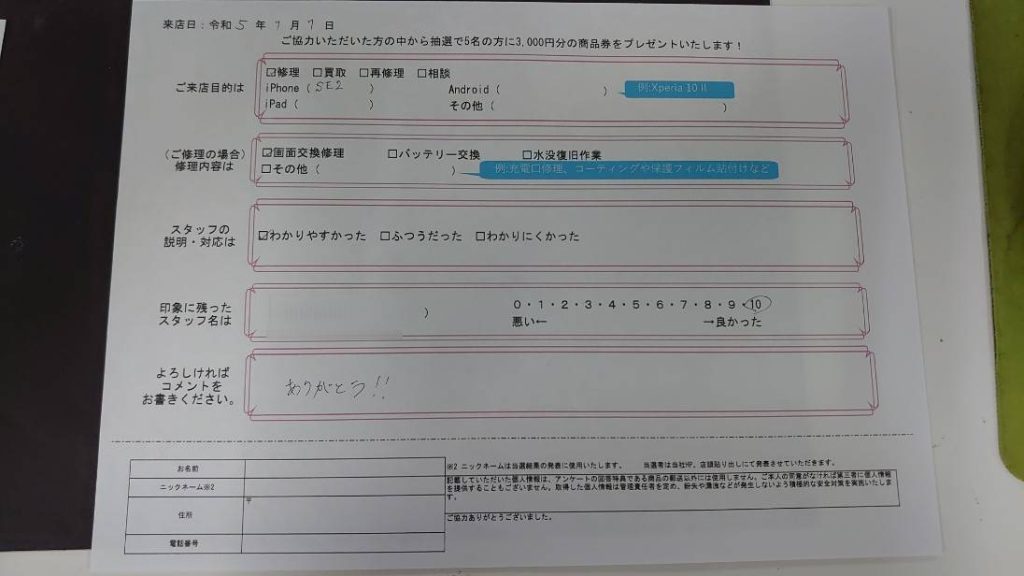 来店日：令和5年7月7日
ご協力いただいた方の中から抽選で5名の方に3,000円分の商品券をプレゼントいたします！
ご来店目的は
☑修理 □買取 □再修理 □相談
iPhone（SE2） Android（ ） 例:Xperia 10 II
iPad（ ） その他（ ）
（ご修理の場合）
修理内容は
☑画面交換修理 □バッテリー交換 □水没復旧作業
□その他（ ） 例:充電口修理、コーティングや保護フィルム貼付けなど
スタッフの
説明・対応は
☑わかりやすかった □ふつうだった □わかりにくかった
印象に残った
スタッフ名は
） 0・1・2・3・4・5・6・7・8・9・10
悪い← →良かった
よろしければ
コメントを
お書きください。
ありがとう!!
お名前
ニックネーム※2
住所 〒
電話番号
※2 ニックネームは当選結果の発表に使用いたします。 当選者は当社HP、店頭貼り出しにて発表させていただきます。
記載していただいた個人情報は、アンケートの回答特典である商品の郵送以外には使用しません。ご本人の同意がなければ第三者に個人情報
を提供することもございません。取得した個人情報は管理責任者を定め、紛失や漏洩などが発生しないよう積極的な安全対策を実施いたしま
す。
ご協力ありがとうございました。